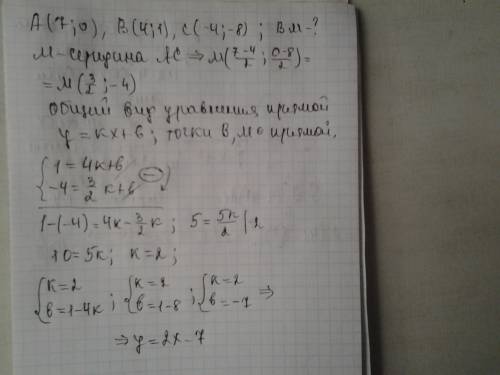 A(7;0), B(4;1), C(-4;-8); BM-?
M-середина AC ⇒ M(7-4/2; 0-8/2)=
=M(3/2;-4)
Общий вид уравнения прямой
y=kx+b; точки B,M∈прямой.
{1=4k+b
{-4=3/2 k+b (-)
1-(-4)=4k-3/2 k; 5=5k/2 |·2
10=5k; k=2;
{k=2 {k=2 {k=2
{b=1-4k; {b=1-8; {b=-7 ⇒
⇒y=2x-7